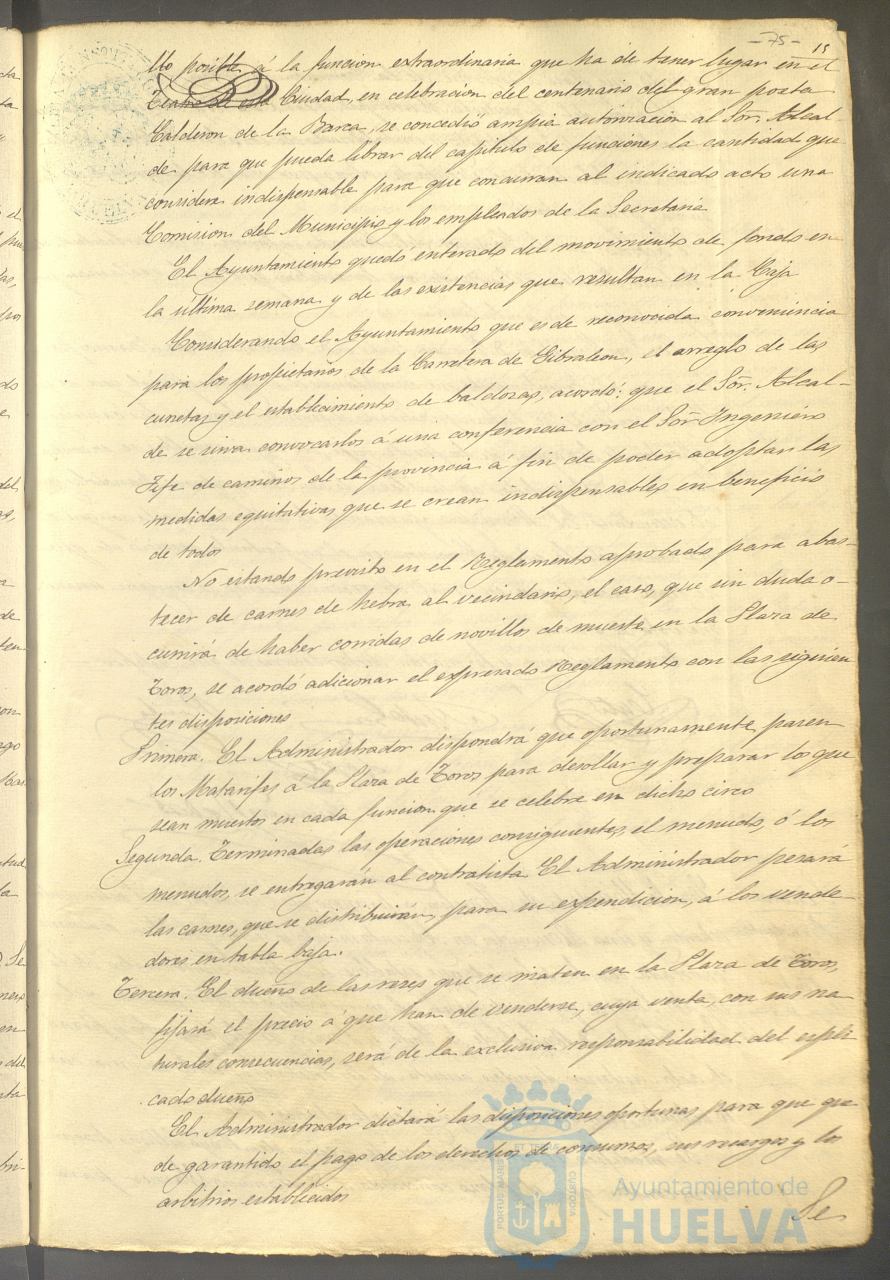 -75- 15
llo posible, á la funcion extraordinaria que ha de tener lugar en el
Teatro de esta Ciudad, en celebracion del centenario del gran poeta
Calderon de la Barca, se concedió ampia autorizacion al Sor. Alcal
de para que pueda librar del capitulo de funciones la cantidad que
considere indispensable para que concurran al indicado acto una
Comision del Municipio y los empleados de la Secretaria
El Ayuntamiento quedó enterado del movimiento de fondos en
la última semana y de las existencias que resultan en la Caja
Considerando el Ayuntamiento que es de reconocida conveniencia
para los propietarios de la Carretera de Gibraleon, el arreglo de las
cunetas y el establecimiento de baldozas, acordó: que el Sor. Alcal-
de se sirva convocarlos á una conferencia con el Sor Ingeniero
Jefe de caminos de la provincia á fin de poder adoptar las
medidas equitativas que se crean indispensables en beneficio
de todos
No estando previsto en el Reglamento aprobado para abas-
tecer de carnes de hebra al vecindario, el caso, que sin duda o-
currirá de haber corridas de novillos de muerte en la Plaza de
Toros, se acordó adicionar el espresado Reglamento con las siguien
tes disposiciones
Primera. El Administrador dispondrá que oportunamente pasen
los Matarifes á la Plaza de Toros para desollar y preparar los que
sean muertos en cada funcion que se celebre en dicho circo
Segunda. Terminadas las operaciones consiguientes, el menudo, ó los
menudos, se entregarán al contratista El Administrador pesará
las carnes, que se distribuirán para su espendicion, á los vende-
dores en tabla baja.
Tercera. El dueño de las reses que se maten en la Plaza de Toros,
fijará el precio á que han de venderse, cuya venta, con sus na
turales consecuencias, será de la exclusiva responsabilidad del espli
cado dueño
El Administrador dictará las disposiciones oportunas para que que
de garantido el pago de los derechos de consumos, sus recargos y los
arbitrios establecidos
Se
PORTUS MARIS ET TERRAE CUSTODIA
Ayuntamiento de
HUELVA